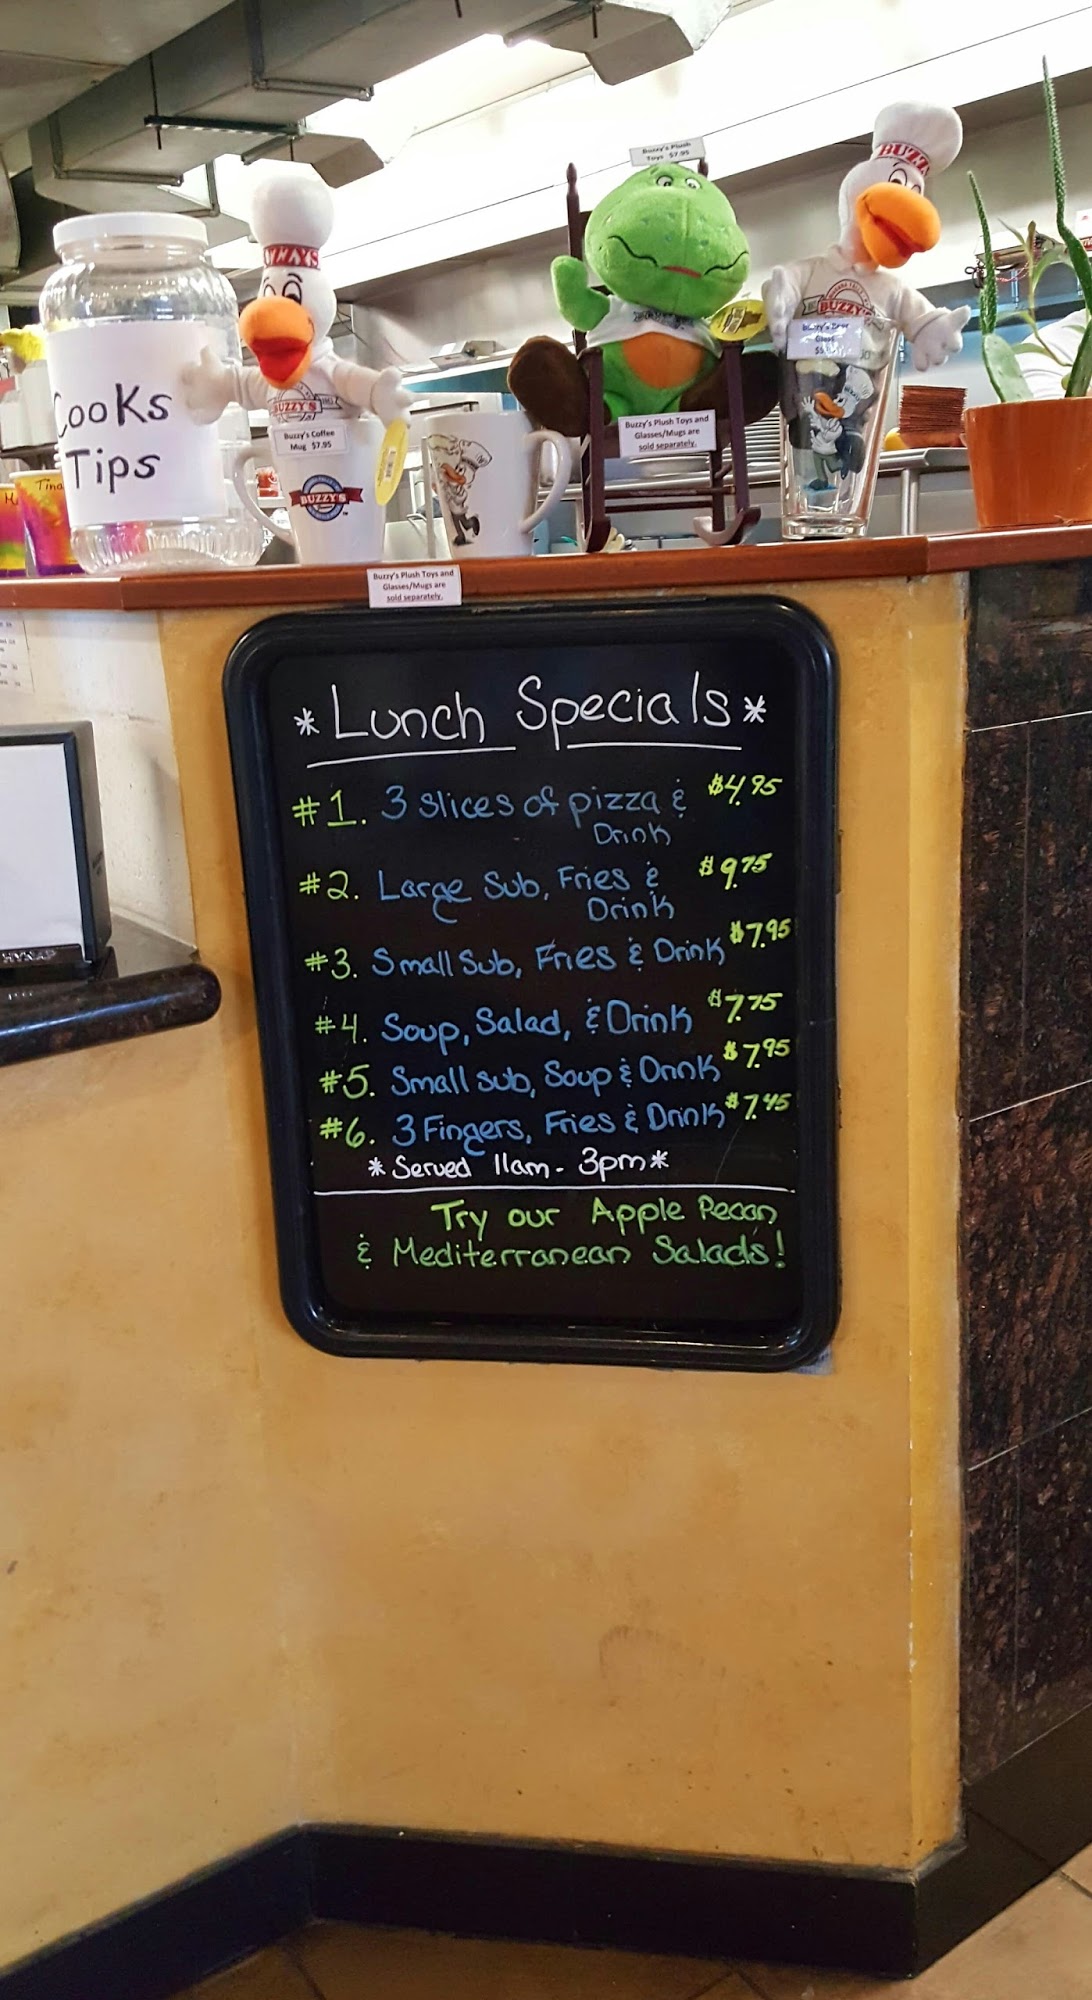 Buzzy's Plush
Toys $7.95
BUZZY'S
BUZZY'S
Cooks
Tips
Tina
BUZZY'S
Buzzy's Coffee
Mug $7.95
BUZZY'S
Buzzy's Plush Toys and
Glasses/Mugs are
sold separately.
Buzzy's Plush Toys and
Glasses/Mugs are
sold separately.
*Lunch Specials*
#1. 3 slices of pizza & $4.95
Drink
#2. Large Sub, Fries & $9.75
Drink
#3. Small Sub, Fries & Drink $7.95
#4. Soup, Salad, & Drink $7.75
#5. Small sub, Soup & Drink $7.95
#6. 3 Fingers, Fries & Drink $7.45
*Served 11am - 3pm*
Try our Apple Pecan
& Mediterranean Salads!